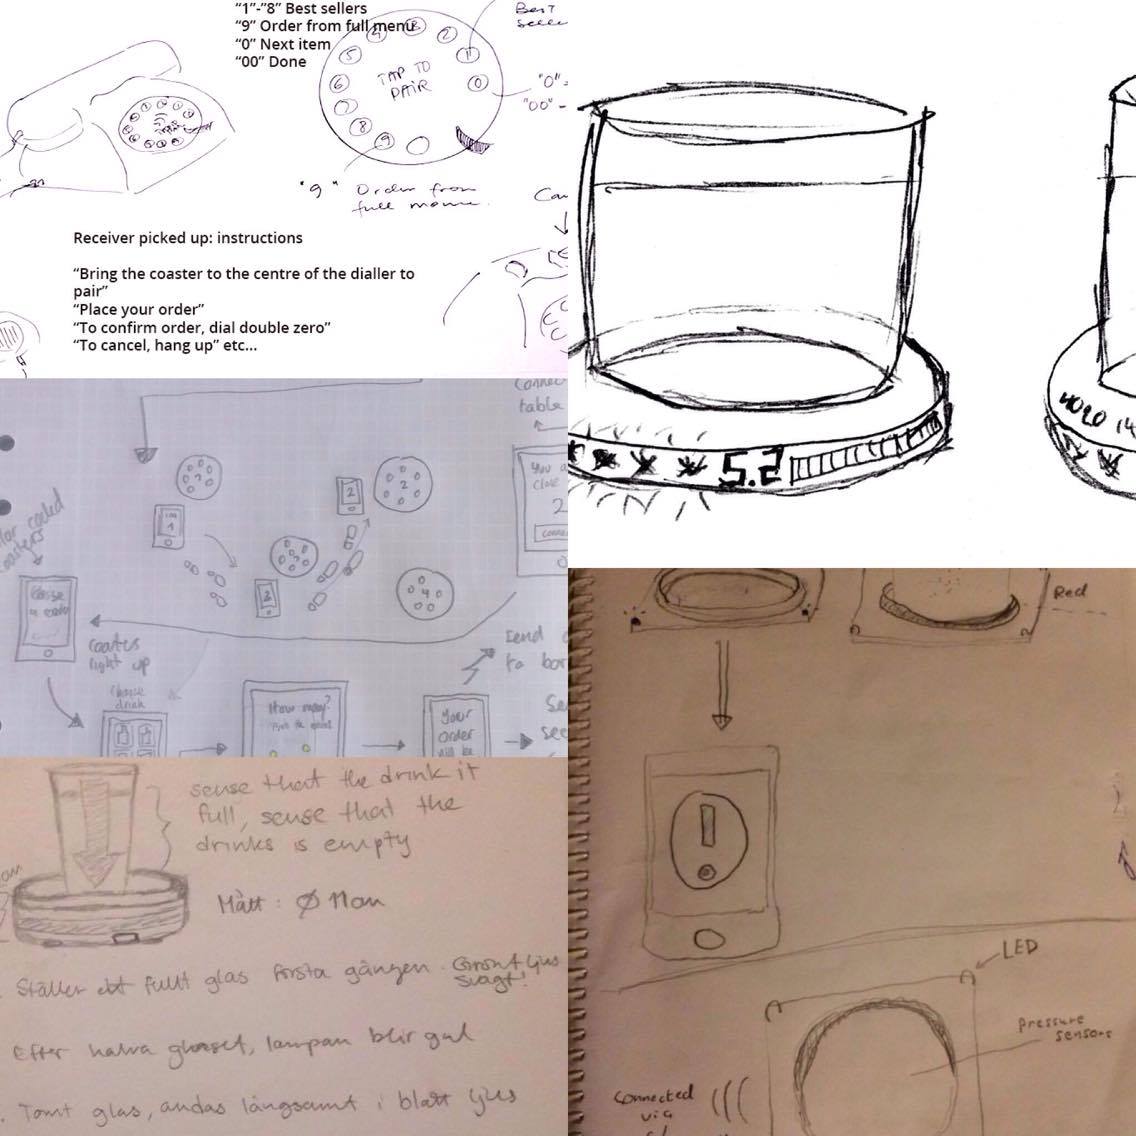 "1"-"8" Best sellers
"9" Order from full menu
"0" Next item
"00" Done
Best
TAP TO
PAIR
0
1
2
5
6
7
8
9
"0"-
"00"-
"9" Order from
full menue.
Receiver picked up: instructions
“Bring the coaster to the centre of the dialler to
pair”
“Place your order”
“To confirm order, dial double zero”
“To cancel, hang up” etc...
5.2
Connec
table
You a
close
2
1
2
3
2
4
coaster
light up
Choose
drink
How many?
Your
order
will be
Send
to bar
sense that the drink it
full, sense that the
drinks is empty
Mått: Ø 11cm
Ställer ett fullt glas första gången. Grönt ljus
svagt!
Efter halva glaset, lampan blir gul
Tomt glas, andas långsamt i blått ljus
Red
LED
pressure
sensors
connected
via